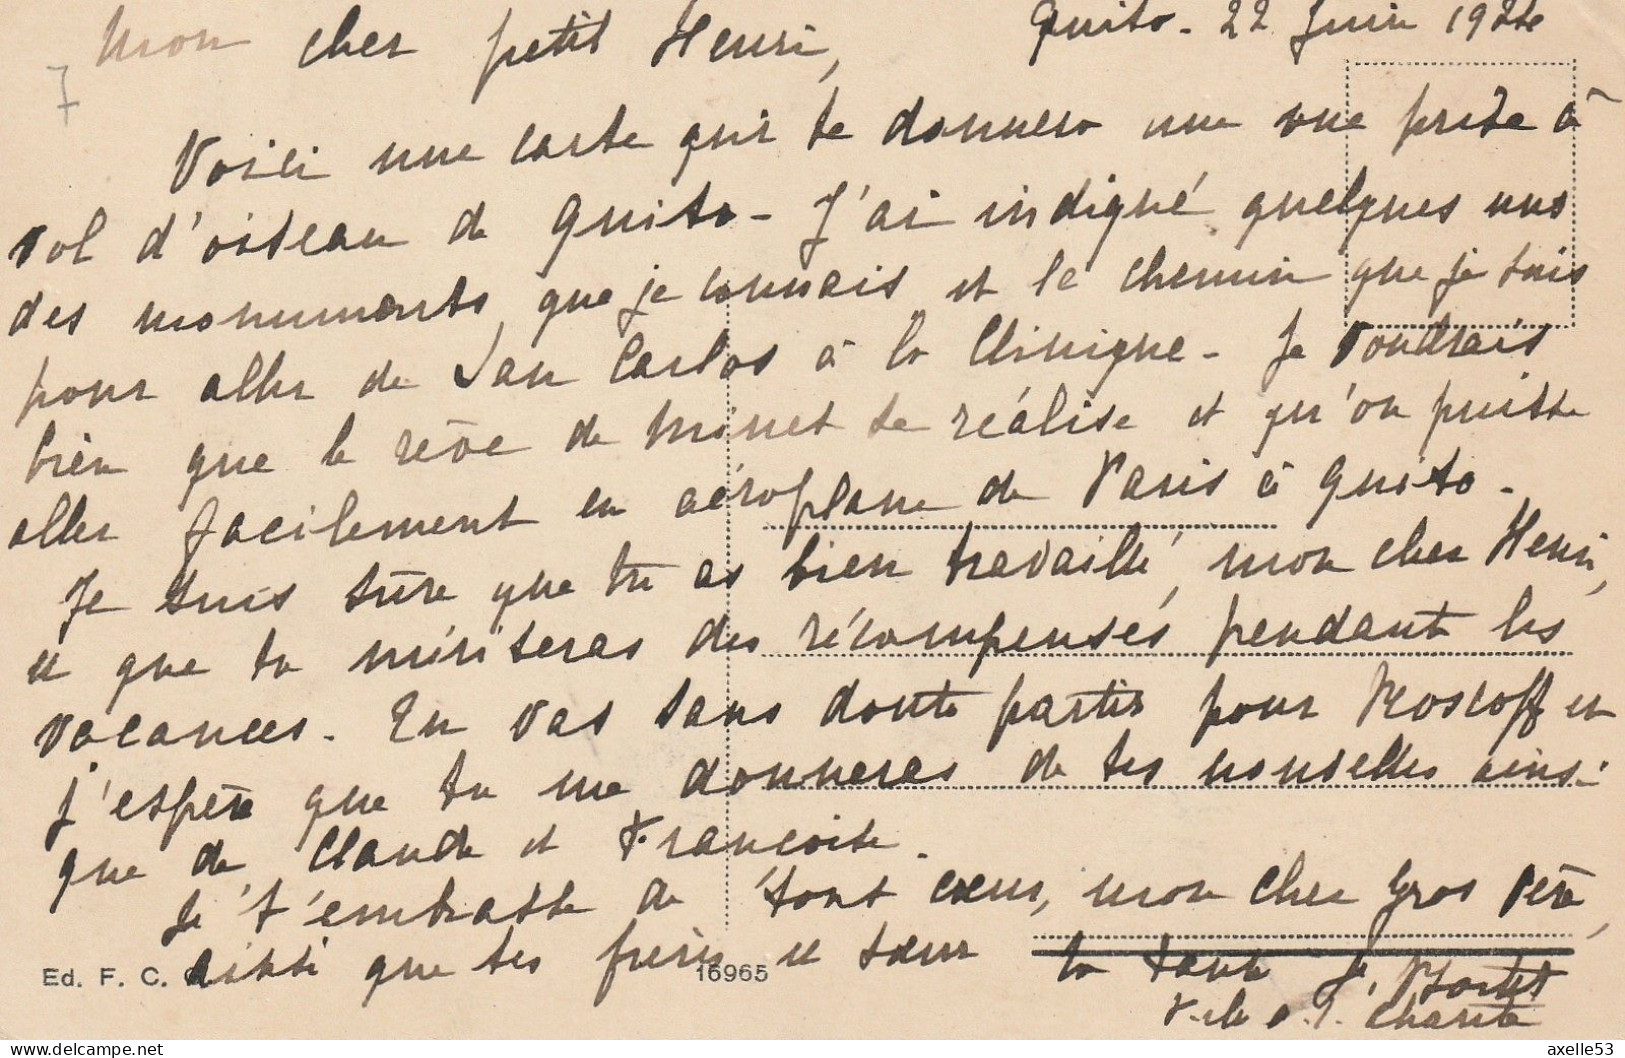 Mon cher petit Henri, Quito - 22 Juin 192
Voici une carte qui te donnera une vue prise à
vol d'oiseau de Quito - J'ai indiqué quelques uns
des monuments que je connais et le chemin que je suis
pour aller de San Carlos à la Clinique - Je voudrais
bien que le rêve de Minet se réalise et qu'on puisse
aller facilement en aéroplane de Paris à Quito -
Je suis sûre que tu as bien travaillé, mon cher Henri,
et que tu mériteras des récompenses pendant les
vacances - Tu vas sans doute partir pour Roscoff et
j'espère que tu me donneras de tes nouvelles ainsi
que de Claude et Françoise.
Je t'embrasse de tout cœur, mon cher Gros Père,
ainsi que tes frères et sœur ta tante J.
Charité
Ed. F. C. 16965
axelle53